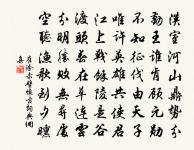 漢室河山鼎勢分
勤王誰肯顧元勳
不知征伐由天子
唯許英雄共使君
江上戰餘陵是谷
渡頭春在草連雲
分明勝敗無尋處
空聽漁歌到夕曛
崔塗赤壁懷古詞典網